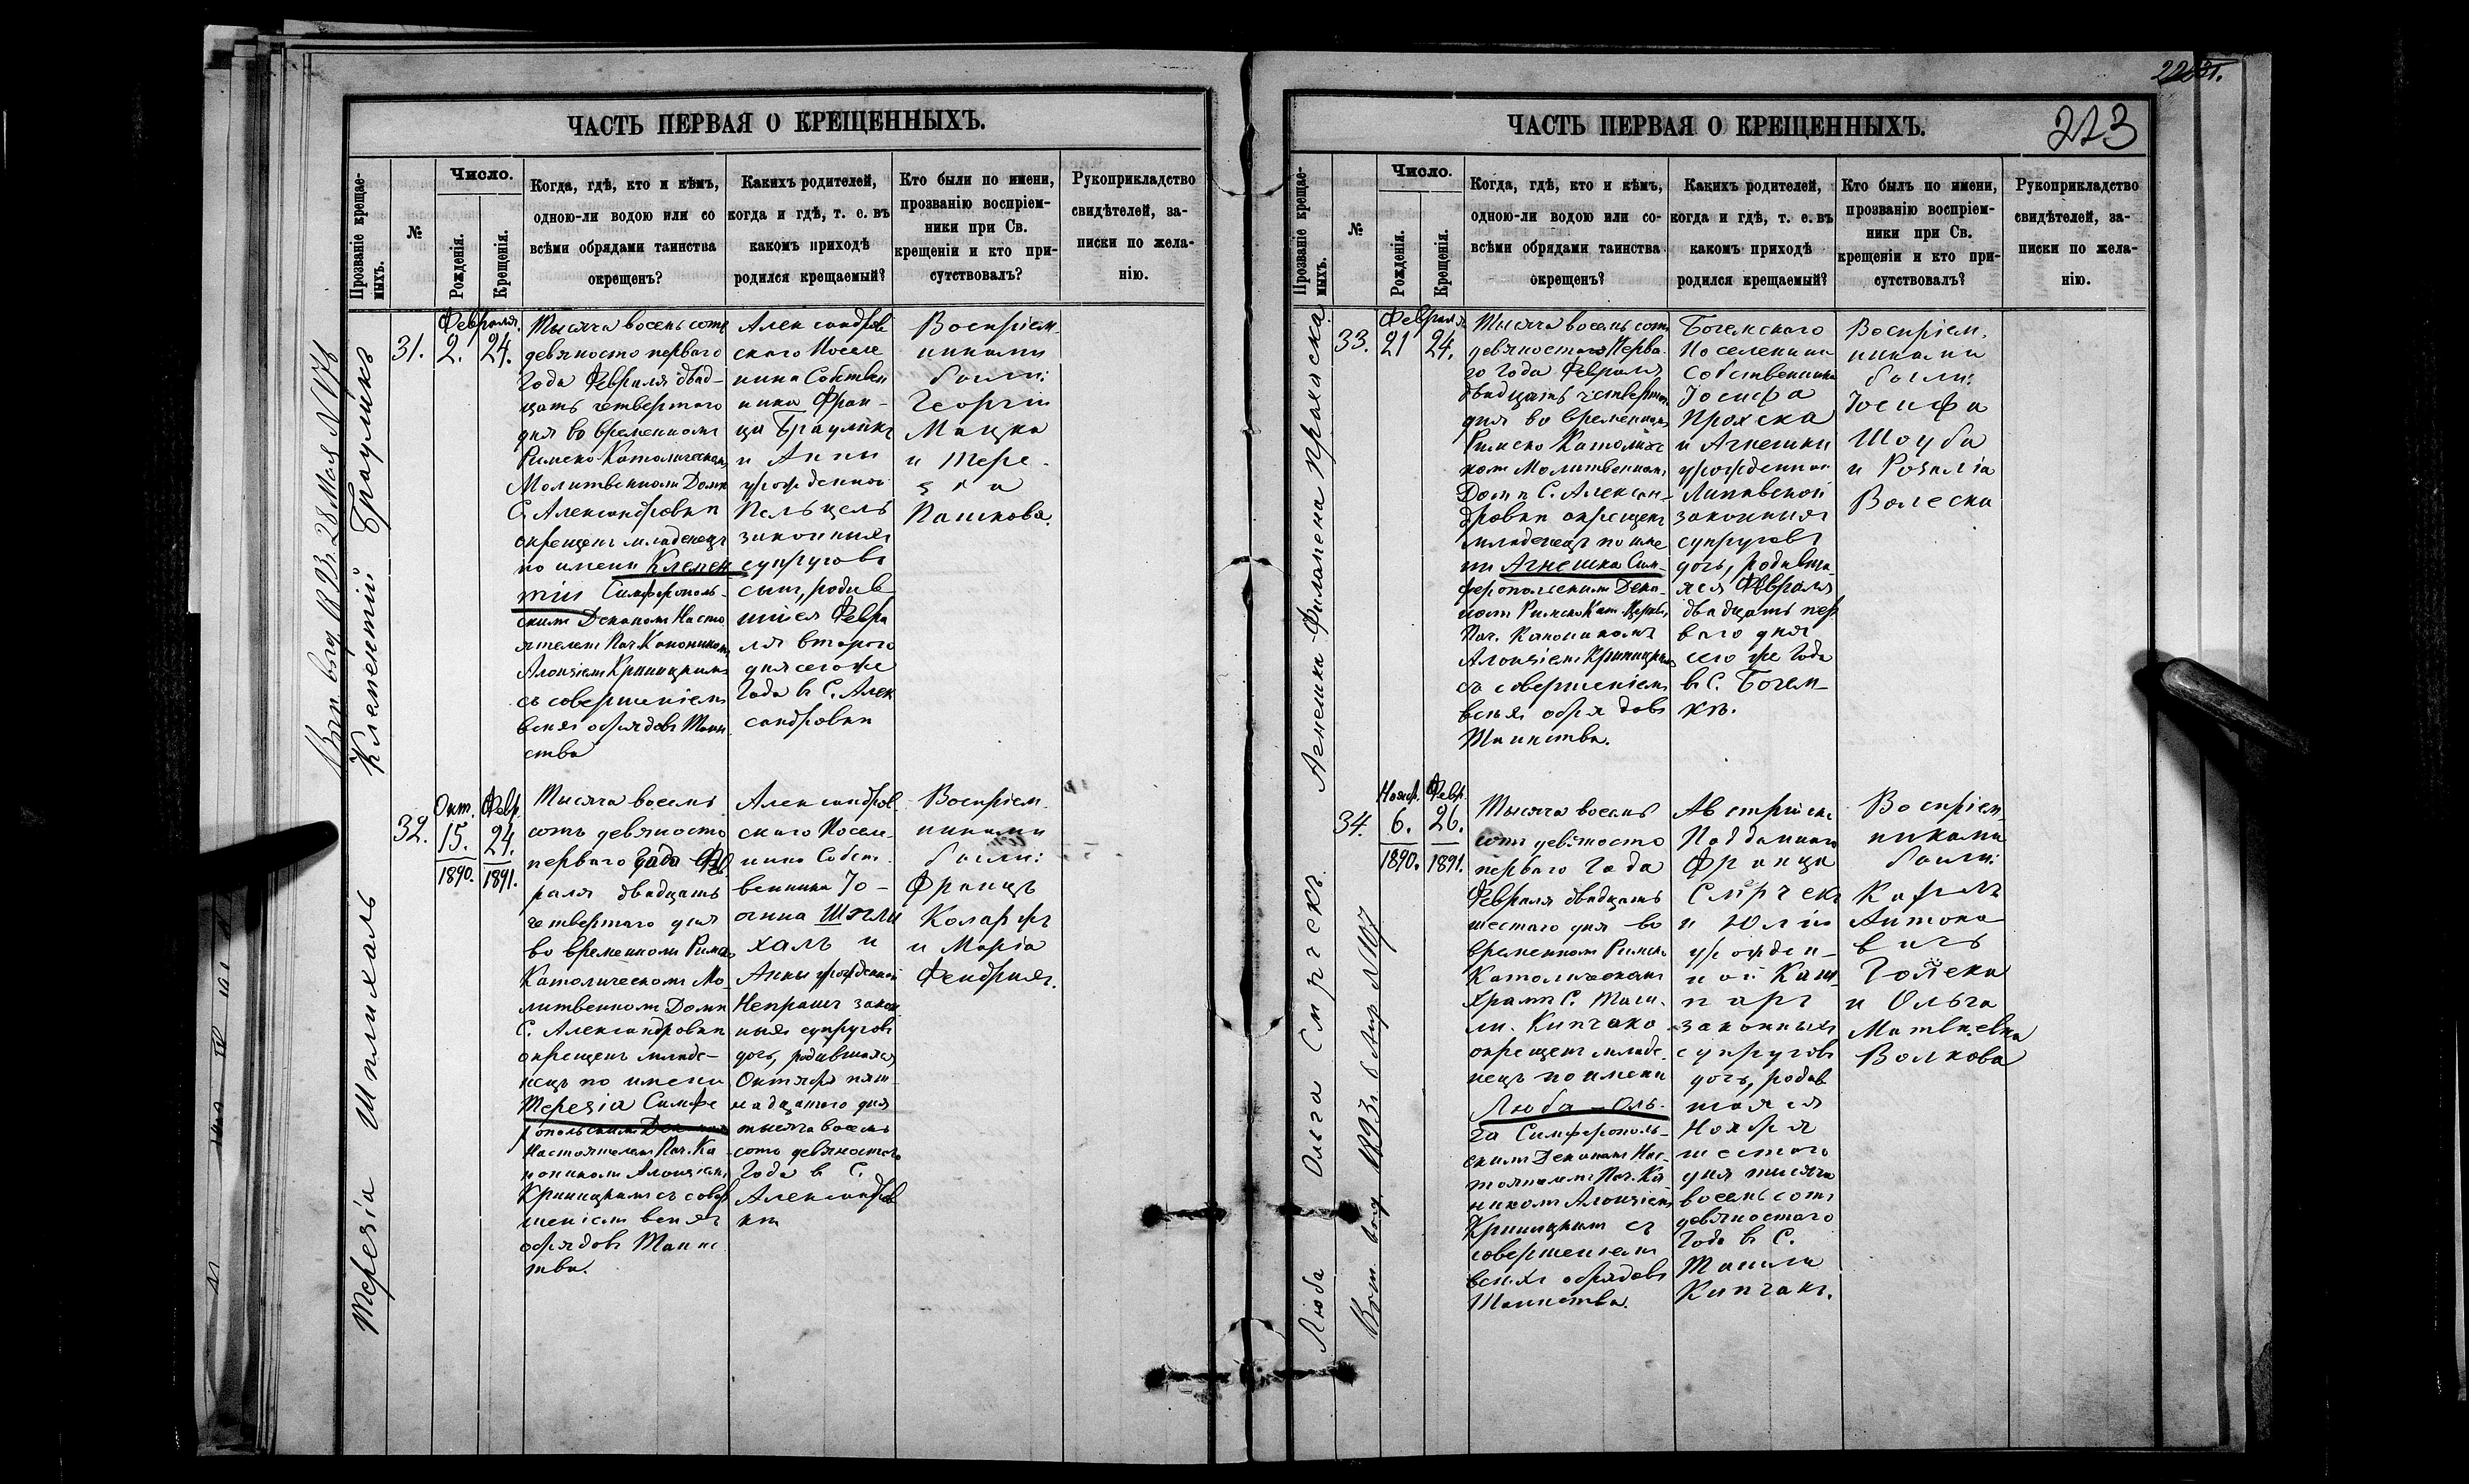 ЧАСТЬ ПЕРВАЯ О КРЕЩЕННЫХЪ.
Прозваніе крещае-
мыхъ.
№
Число.
Рожденія.
Крещенія.
Когда, гдѣ, кто и кѣмъ,
одною-ли водою или со
всѣми обрядами таинства
окрещенъ?
Какихъ родителей,
когда и гдѣ, т. е. въ
какомъ приходѣ
родился крещаемый?
Кто были по имени,
прозванію воспріем-
ники при Св.
крещеніи и кто при-
сутствовалъ?
Рукоприкладство
свидѣтелей, за-
писки по жела-
нію.
1893. 28 Мая N 178
Климентій Браумикъ
31.
Февраля.
2. 24.
Тысяча восемь сотъ
девяносто перваго
Года Февраля двад-
цать четвертаго
дня во временномъ
Римско-Католическомъ
Молитвенномъ Домѣ
С. Александровки
окрещенъ младенецъ
по имени Клемен
тій Симферополь-
скимъ Деканомъ Насто
ятелемъ Поч. Каноникомъ
Алоизіемъ Криницкимъ
съ совершеніемъ
всехъ обрядовъ Таин
ства
Александров
скаго Поселе
нина Собствен
ника Фран-
ца Браумикъ
и Анны
урожденной
Пельцель
законныхъ
супруговъ
сынъ, родив
шійся Февра
ля втораго
дня сего же
Года въ С. Алек
сандровки
Воспріем.
никами
были:
Георгій
Мацка
и Тере-
зіа
Пашкова.
Терезіа Шплихаль
32.
Окт. Февр.
15. 24.
1890. 1891.
Тысяча восемь
сотъ девяносто
перваго Года Фев
раля двадцать
четвертаго дня
во временномъ Римско
Католическомъ Мо-
литвенномъ Домѣ
С. Александровки
окрещенъ младе-
нецъ по имени
Терезіа Симфе
ропольскимъ Деканомъ
Настоятелемъ Поч. Ка
ноникомъ Алоизіемъ
Криницкимъ съ совер
шеніемъ всехъ
обрядовъ Таинс
тва.
Александров
скаго Поселе
нина Собст
венника Іо-
анна Шпли
халъ и
Анны урожденной
Непрашъ закон
ныхъ супруговъ
дочь, родившаяся
Октября пят
надцатаго дня
тысяча восемь
сотъ девяностаго
Года въ С.
Александров
кѣ
Воспріем.
никами
были:
Францъ
Коларжъ
и Маріа
Фендрихъ.
223
ЧАСТЬ ПЕРВАЯ О КРЕЩЕННЫХЪ.
Прозваніе крещае-
мыхъ.
№
Число.
Рожденія.
Крещенія.
Когда, гдѣ, кто и кѣмъ,
одною-ли водою или со-
всѣми обрядами таинства
окрещенъ?
Какихъ родителей,
когда и гдѣ, т. е. въ
какомъ приходѣ
родился крещаемый?
Кто былъ по имени,
прозванію воспріем-
ники при Св.
крещеніи и кто при-
сутствовалъ?
Рукоприкладство
свидѣтелей, за-
писки по жела-
нію.
Агнешка-Филомена Прохаска
33.
Февраля
21 24.
Тысяча восемь сотъ
девяностаго Перва
го Года Февраля
двадцать четвертаго
дня во временномъ
Римско Католичес
комъ Молитвенномъ
Домѣ С. Алексан-
дровки окрещенъ
младенецъ по име
ни Агнешка Сим-
феропольскимъ Дека
номъ Римско Кат. Церкви
Поч. Каноникомъ
Алоизіемъ Криницкимъ
съ совершеніемъ
всехъ обрядовъ
Таинства.
Богемскаго
Поселенина
Собственника
Іосифа
Прохска
и Агнешки
урожденной
Липавской
законныхъ
супруговъ
дочь, родивша
яся Февраля
двадцать пер
ваго дня
сего же Года
въ С. Богем-
кѣ.
Воспріем.
никами
были:
Іосифа
Шоуба
и Розаліа
Валеска
Люба Ольга Смрчекъ.
1893. 6 Апр. N 107
34.
Нояб. Февр.
6. 26.
1890. 1891.
Тысяча восемь
сотъ девяносто
перваго Года
Февраля двадцать
шестаго дня во
временномъ Римско
Католическомъ
Храмѣ С. Таш
лы-Кипчакъ
окрещенъ младе
нецъ по имени
Люба-Оль-
га Симферополь-
скимъ Деканомъ Нас-
тоятелемъ Поч. Ка
никомъ Алоизіемъ
Криницкимъ съ
совершеніемъ
всехъ обрядовъ
Таинства.
Австрійск
Подданнаго
Франца
Смрчекъ
и Юліи
урожден-
ной Каш
паръ
законныхъ
супруговъ
дочь, родив
шаяся
Ноября
шестаго
дня тысяча
восемь сотъ
девяностаго
Года въ С.
Ташлы
Кипчакъ.
Воспріем
никами
были:
Карлъ
Антоно
вичъ
Голека
и Ольга
Матвѣевна
Волкова